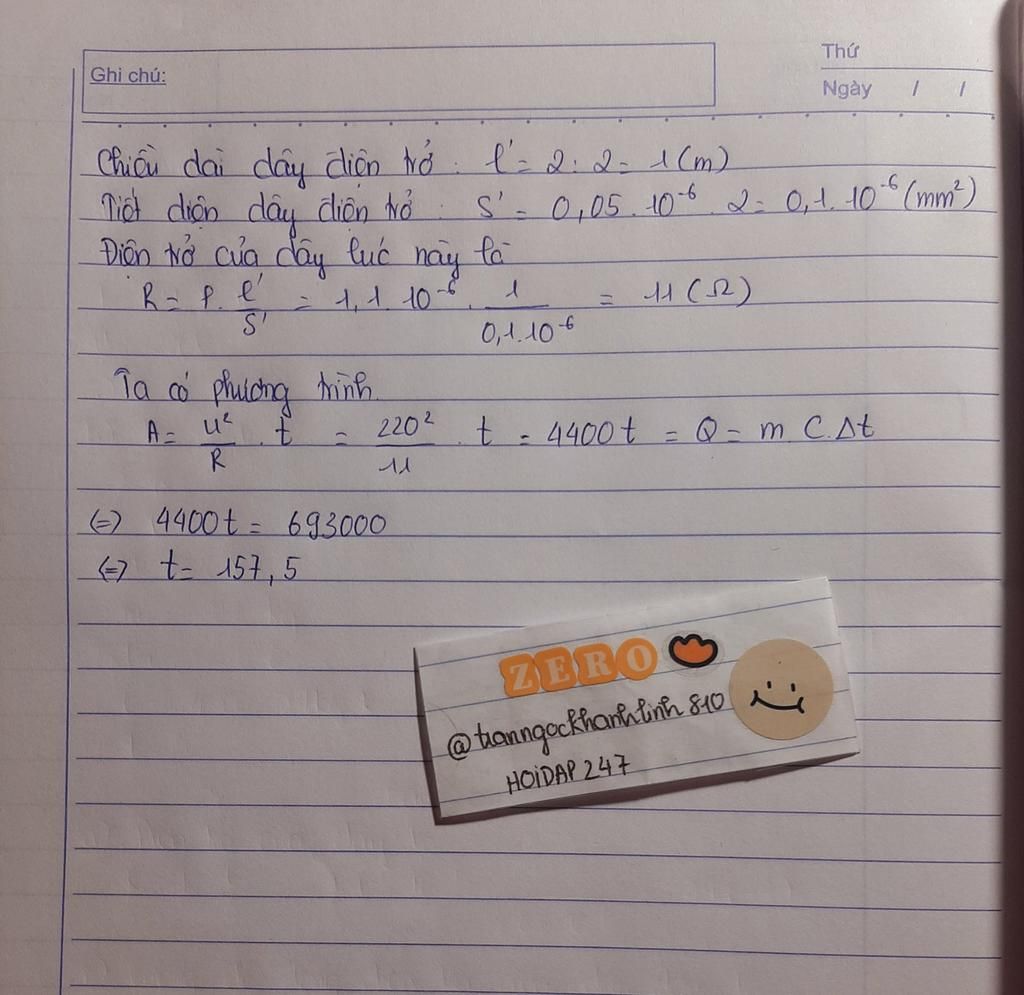 Ghi chú:
Thứ
Ngày / /
Chiều dài dây điện trở : l' = 2 : 2 = 1 (m)
Tiết diện dây điện trở : S' = 0,05 . 10⁻⁶ . 2 = 0,1 . 10⁻⁶ (mm²)
Điện trở của dây lúc này là
R = ρ . l'/S' = 1,1 . 10⁻⁶ . 1/0,1.10⁻⁶ = 11 (Ω)
Ta có phương trình
A = U²/R . t = 220²/11 . t = 4400t = Q = m C.Δt
(=) 4400t = 693000
(=) t = 157,5
ZERO
@tranngockhanhlinh810
HOiDAP 247